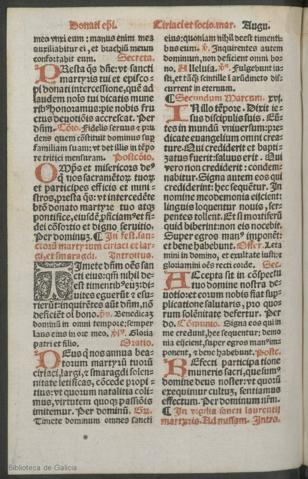 Donati epi.
Ciriaci et socio. mar. Augu.
meo vnxi eum: manus enim mea
auxiliabitur ei, et brachiũ meum
confortabit eum. Secreta.
PResta q̃s dñe: vt sancti
martyris tui et episco-
pi donati intercessione, quẽ ad
laudem nois tui dicatis mune-
ribꝰ honoramus: pie nobis fru
ctus deuotiõis accrescat. Per
dñm. Cõio. Fidelis seruus ⁊ pru
dens quem cõstituit dominus sup
familiam suam: vt det illis in tẽpo
re tritici mensuram. Postcõio.
OMps et misericors deꝰ
q̃ nos sacramẽtoꝝ tuoꝝ
et participes efficis et mini-
stros, presta q̃s: vt intercedẽte
btõ donato martyre tuo atq̃
pontifice, eiusdẽ ꝓficiamꝰ et fi
dei cõsortio et digno seruitio.
Per dominum. In fest. san-
ctorũ martyrum ciriaci et lar-
gi, et smaragdi. Introitus.
TImete dñm oẽs san
cti eiꝰ: qm̃ nihil de-
est timentibꝰ eũ: di
uites eguerũt ⁊ esu-
rierũt: inquirẽtes aũt dñm, nõ
deficiẽt oĩ bono. ps. Benedicã
dominũ in omni tempore: semper
laus eius in ore meo. ℣. Gloria
patri et filio. Oratio.
DEus qui nos annua bea-
torum martyrũ tuorũ
ciriaci, largi, ⁊ smaragdi solen-
nitate letificas, cõcede propi-
tius: vt quorum natalitia coli-
mus, virtutem quoqꝫ passiõis
imitemur. Per dominũ. Gra.
Timete dominum omnes sancti
eius: quoniam nihil deest timenti-
bus eum. ℣. Inquirentes autem
dominum, non deficient omni bo-
no. Alleluia. ℣. Fulgebunt iu-
sti, et tanq̃ scintille ĩ arũdineto di-
scurrent in eternum.
Secundum Marcum. xvj.
IN illo tẽpore. Dixit ie-
sus discipulis suis. Eũn-
tes in mundũ vniuersum: pre-
dicate euangelium omni crea-
ture. Qui crediderit et bapti-
zatus fuerit: saluus erit. Qui
vero non crediderit: condem-
nabitur. Signa autem eos qui
crediderint: hec sequẽtur. In
nomine meo demonia eijcient:
linguis loquentur nouis, ser-
pentes tollent. Et si mortiferũ
quid biberint: non eis nocebit.
Super egros manꝰ imponẽt:
⁊ bene habebunt. Offer. Leta
mini in domino, et exultate iusti: ⁊
gloriamini oẽs recti corde. Sec.
ACcepta sit in cõspectu
tuo domine nostra de-
uotio: et eorum nobis fiat sup
plicatione salutaris, pro quo-
rum solẽnitate defertur. Per
do. Cõmunio. Signa eos qui in
me credunt, hec sequentur: demo
nia eijcient, super egros manꝰ im-
ponent, ⁊ bene habebunt. Postc.
REfecti participatione
muneris sacri, quesumꝰ
domine deus noster: vt quorũ
exequimur cultum, sentiamus
effectum. Per dominum nr̃m.
In vigilia sancti laurentij
martyris. Ad missam. Intro.
Biblioteca de Galicia